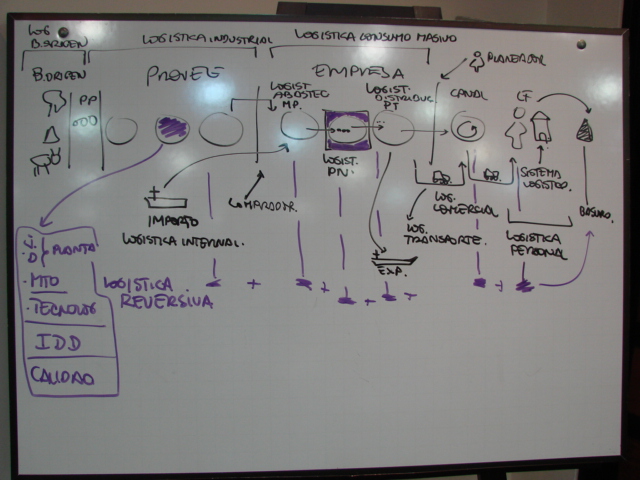 LOG
B.ORIGEN
LOGISTICA INDUSTRIAL
LOGISTICA CONSUMO MASIVO
B.ORIGEN
PP
PROVEE
EMPRESA
PLANEADOR
LOGIST.
ABASTEC
MP.
LOGIST.
DISTRIBUC
PT
CANAL
CF
LOGIST.
PN.
IMPORTO
LOGISTICA INTERNAL.
COMPRADOR.
LOG.
COMERCIAL
LOG.
TRANSPORTE.
SISTEMA
LOGISTICO.
BASURO.
LOGISTICA
PERSONAL
EXP.
PLANTA
MTO
TECNOLOG
IDD
CALIDAD
LOGISTICA
REVERSIVA
+ + + + +